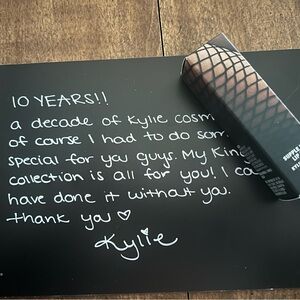 10 YEARS!!
a decade of Kylie
of course I had to do
special for you guys. My
collection is all for you! I
have done it without you.
thank you ♡
Kylie